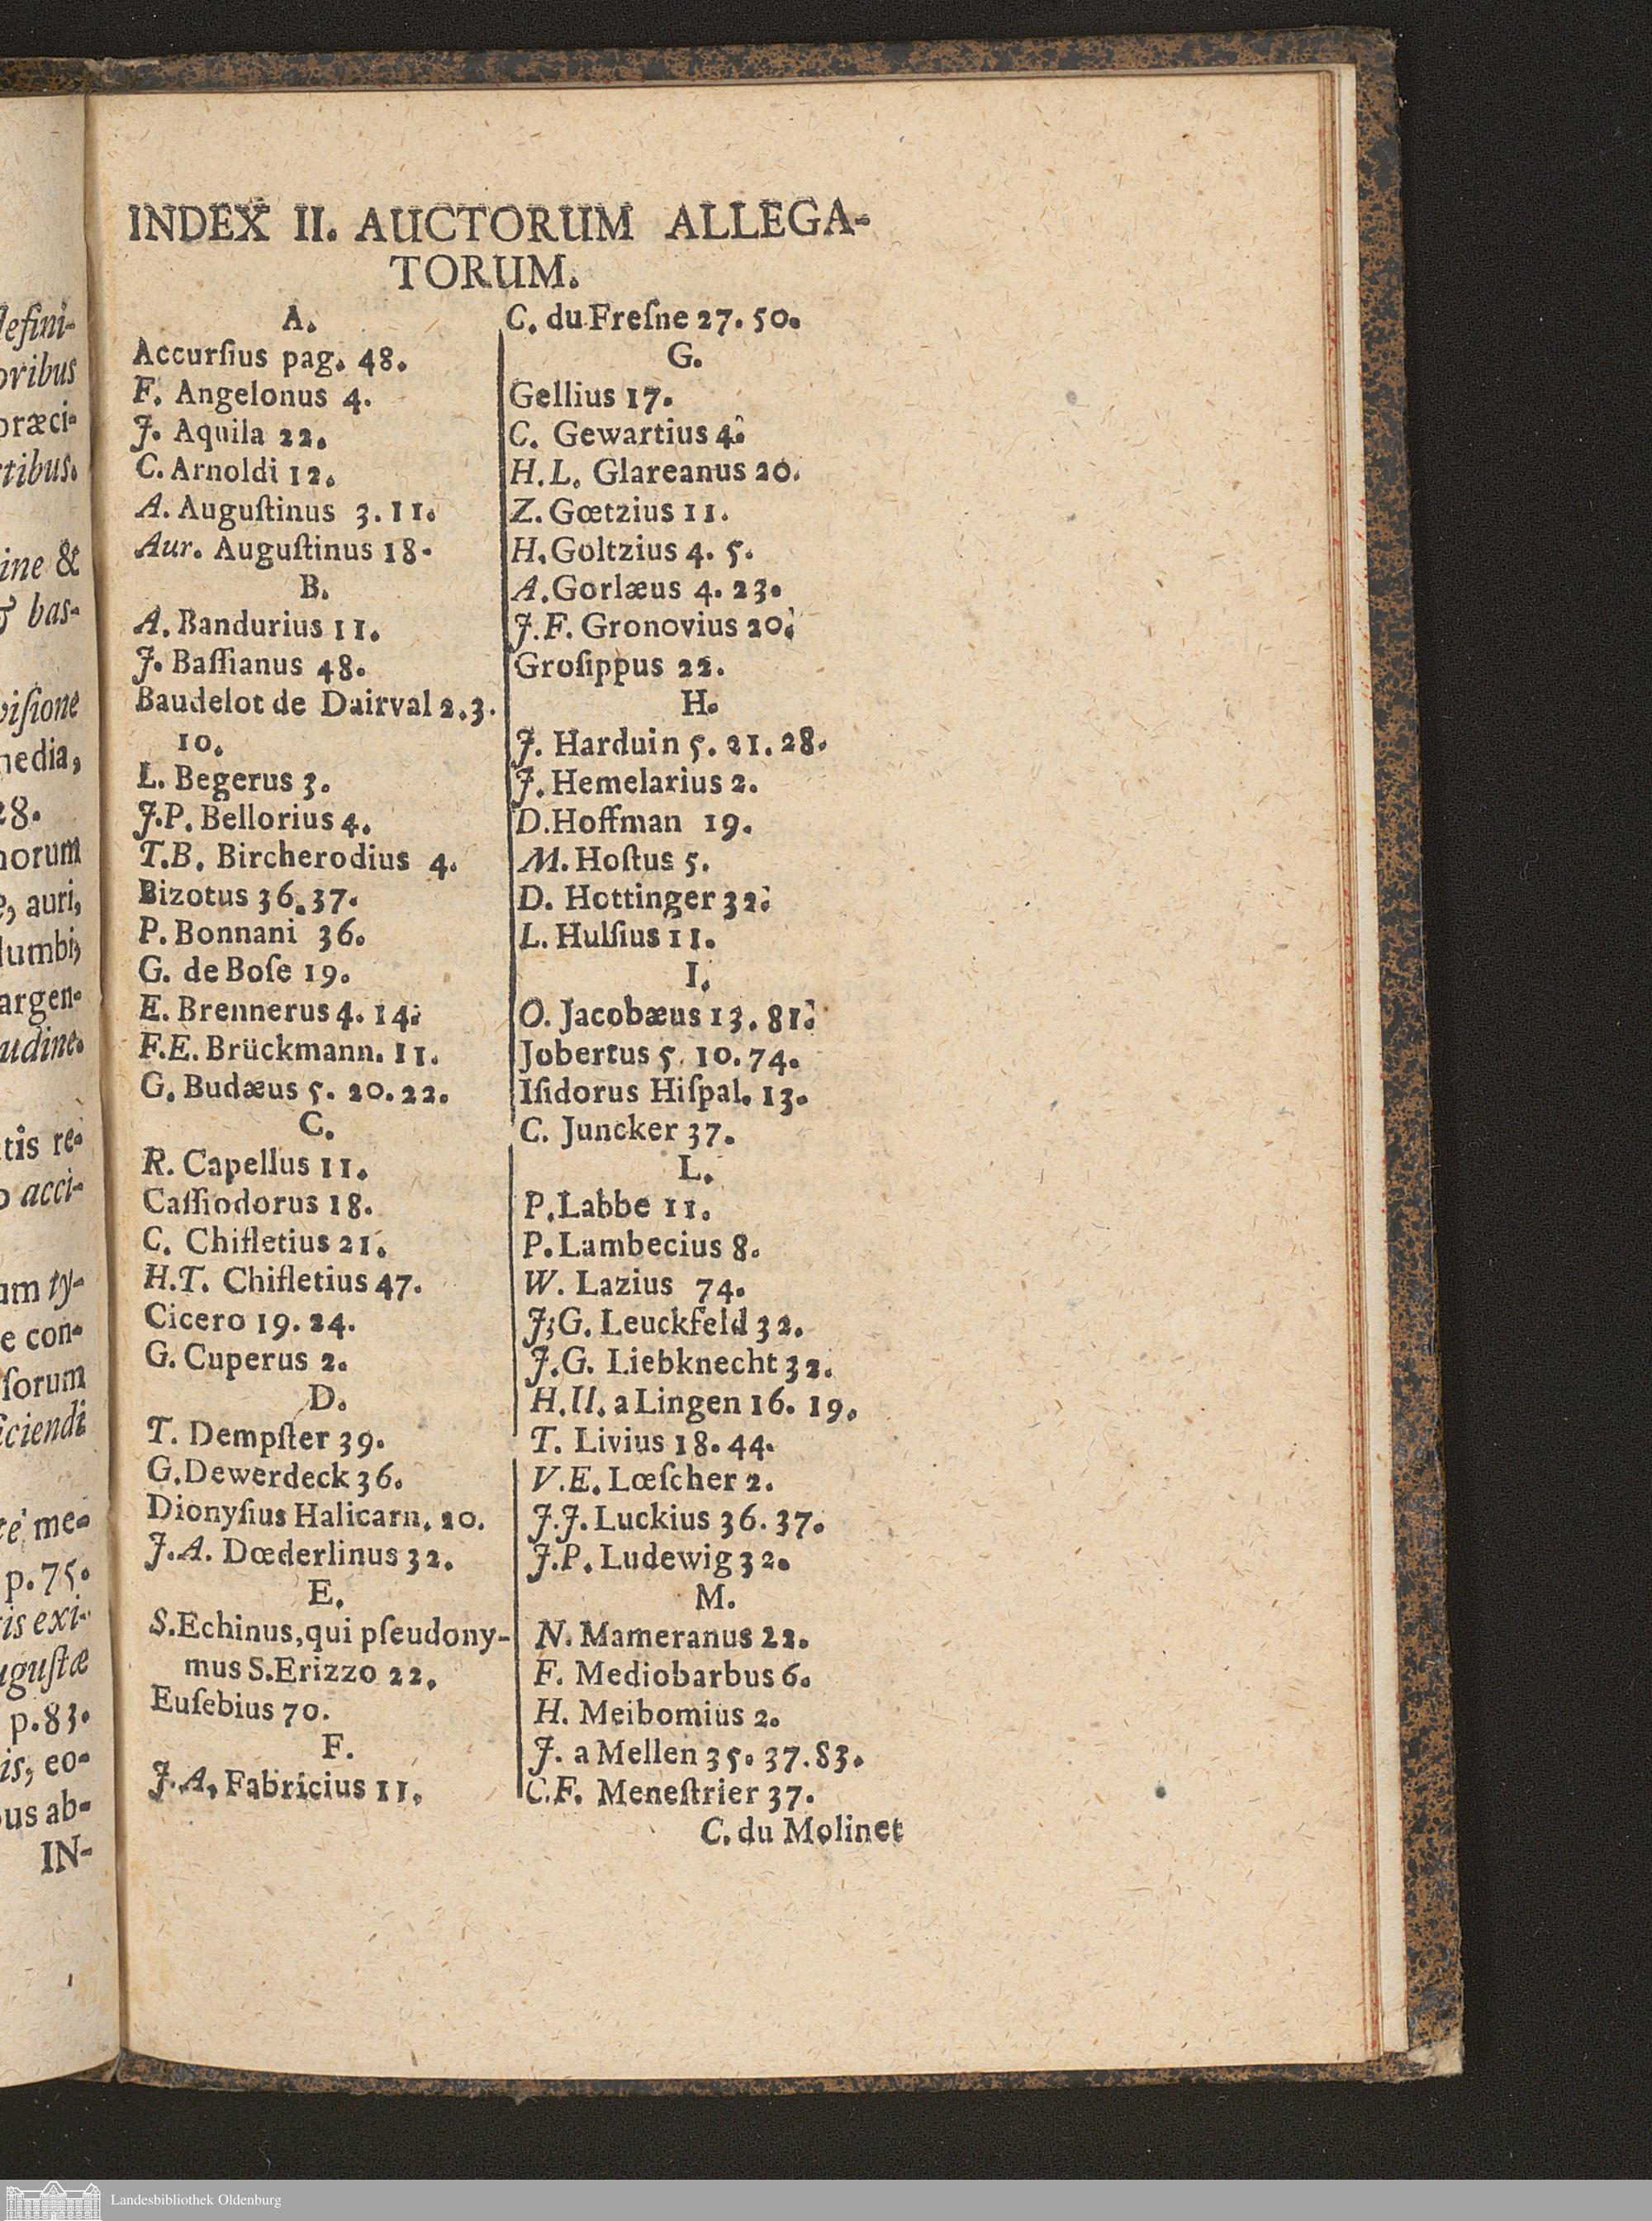 INDEX II. AUCTORUM ALLEGA-
TORUM.
A.
Accurſius pag. 48.
F. Angelonus 4.
J. Aquila 22.
C. Arnoldi 12.
A. Auguſtinus 3. 11.
Aur. Auguſtinus 18.
B.
A. Bandurius 11.
J. Baſſianus 48.
Baudelot de Dairval 2. 3.
10.
L. Begerus 3.
J.P. Bellorius 4.
T.B. Bircherodius 4.
Bizotus 36. 37.
P. Bonnani 36.
G. de Boſe 19.
E. Brennerus 4. 14.
F.E. Brückmann. 11.
G. Budæus 5. 20. 22.
C.
R. Capellus 11.
Caſſiodorus 18.
C. Chifletius 21.
H.T. Chifletius 47.
Cicero 19. 24.
G. Cuperus 2.
D.
T. Dempſter 39.
G. Dewerdeck 36.
Dionyſius Halicarn. 20.
J.A. Dœderlinus 32.
E.
S. Echinus, qui pſeudony-
mus S. Erizzo 22.
Euſebius 70.
F.
J.A, Fabricius 11.
C. du Freſne 27. 50.
G.
Gellius 17.
C. Gewartius 4.
H.L. Glareanus 20.
Z. Gœtzius 11.
H. Goltzius 4. 5.
A. Gorlæus 4. 23.
J.F. Gronovius 20.
Groſippus 22.
H.
J. Harduin 5. 21. 28.
J. Hemelarius 2.
D. Hoffman 19.
M. Hoſtus 5.
D. Hottinger 32.
L. Hulſius 11.
I.
O. Jacobæus 13. 81.
Jobertus 5. 10. 74.
Iſidorus Hiſpal. 13.
C. Juncker 37.
L.
P. Labbe 11.
P. Lambecius 8.
W. Lazius 74.
J;G. Leuckfeld 32.
J.G. Liebknecht 32.
H.II. a Lingen 16. 19.
T. Livius 18. 44.
V.E. Lœſcher 2.
J.J. Luckius 36. 37.
J.P. Ludewig 32.
M.
N. Mameranus 22.
F. Mediobarbus 6.
H. Meibomius 2.
J. a Mellen 35. 37. 83.
C.F. Meneſtrier 37.
C. du Molinet
Landesbibliothek Oldenburg